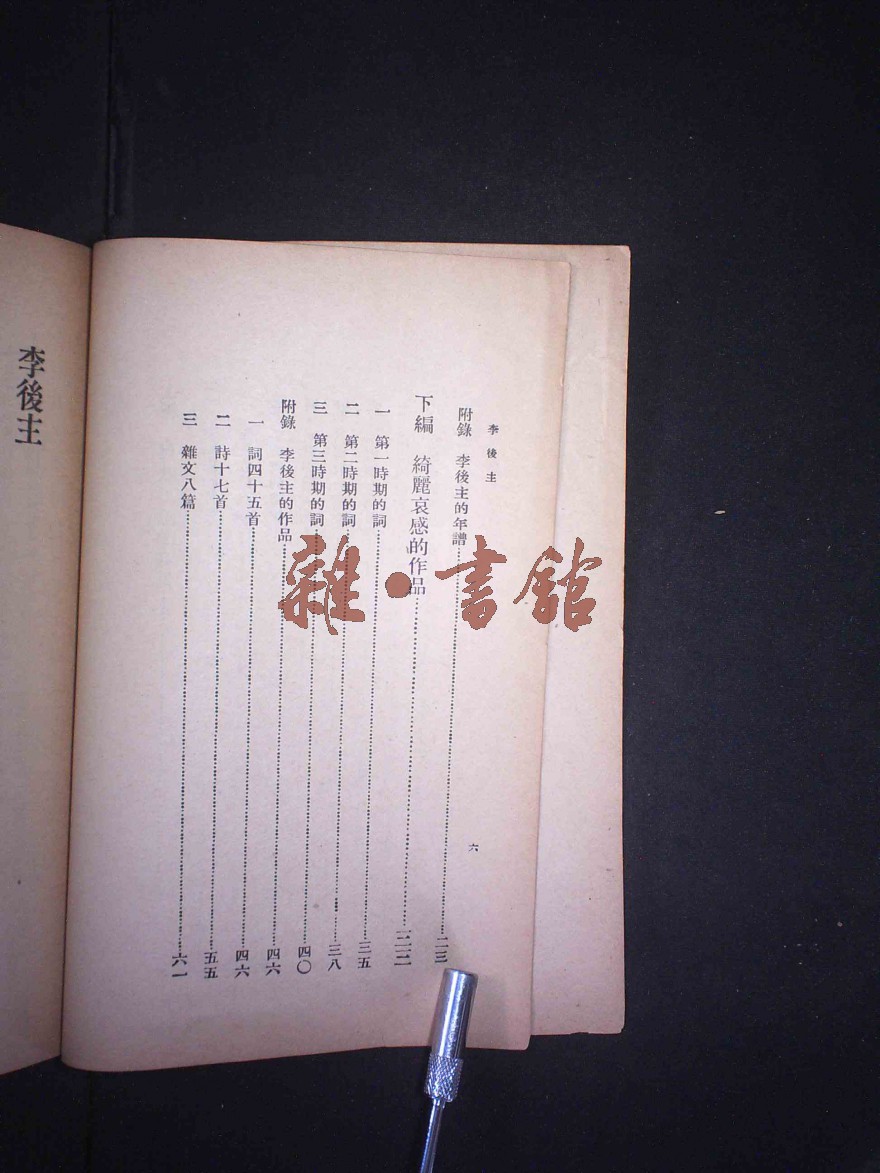 李後主
附錄 李後主的年譜……二三
下編 綺麗哀感的作品……
一 第一時期的詞……三五
二 第二時期的詞……三八
三 第三時期的詞……四〇
附錄 李後主的作品……四六
一 詞四十五首……四六
二 詩十七首……五五
三 雜文八篇……六一
六
李後主
雜·書館